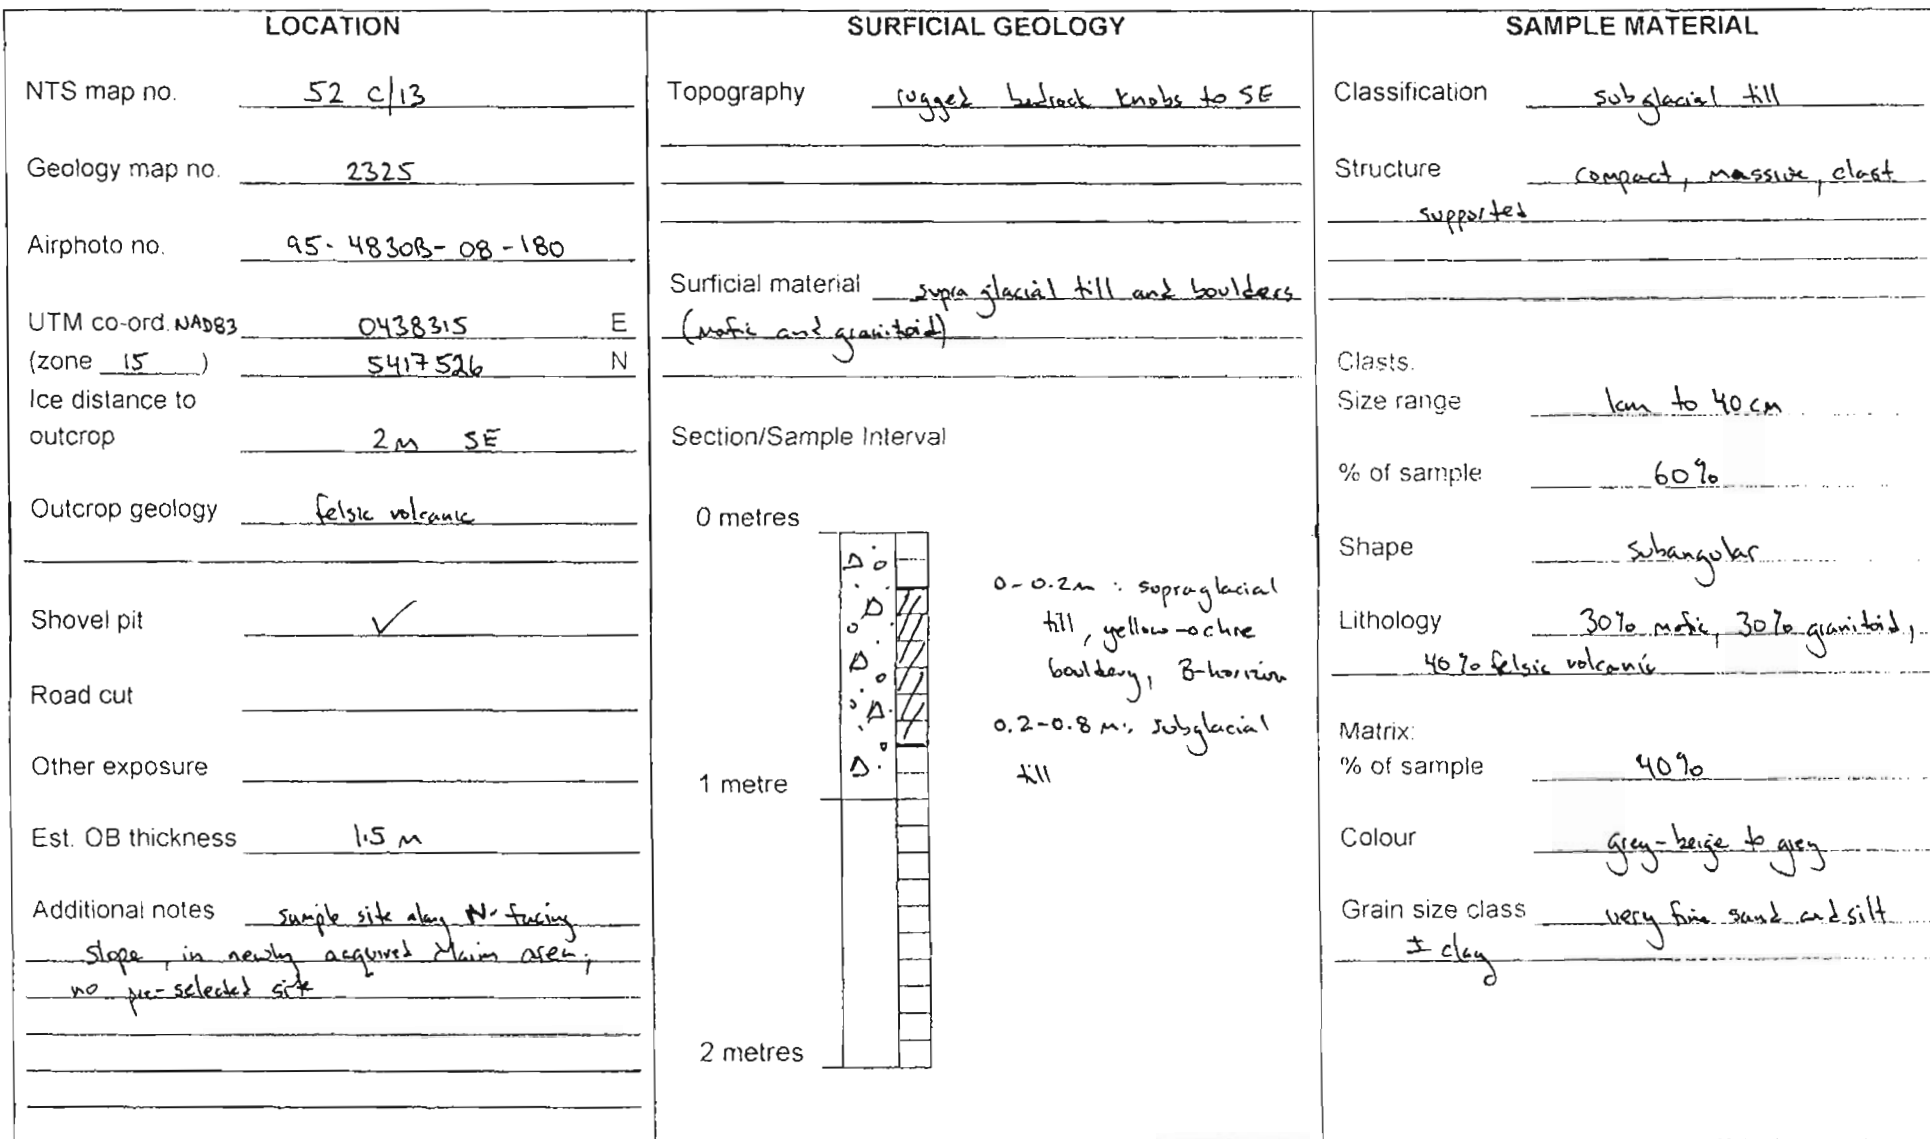 LOCATION
NTS map no. 52 C/13
Geology map no. 2325
Airphoto no. 95-4830B-08-180
UTM co-ord. NAD83 0438315 E
(zone 15 ) 5417526 N
Ice distance to
outcrop 2m SE
Outcrop geology felsic volcanic
Shovel pit ✓
Road cut
Other exposure
Est. OB thickness 1.5 m
Additional notes sample site along N-facing
slope, in newly acquired area;
no pre-selected site
SURFICIAL GEOLOGY
Topography rugged bedrock knobs to SE
Surficial material supraglacial till and boulders
(mafic and granitoid)
Section/Sample Interval
0 metres
0-0.2m : supraglacial
till, yellow-ochre
bouldery, B-horizon
0.2-0.8 m: subglacial
till
1 metre
2 metres
SAMPLE MATERIAL
Classification subglacial till
Structure compact, massive, clast
supported
Clasts.
Size range to 40 cm
% of sample 60%
Shape subangular
Lithology 30% mafic, 30% granitoid,
40% felsic volcanic
Matrix:
% of sample 40%
Colour grey-beige to grey
Grain size class very fine sand and silt
± clay